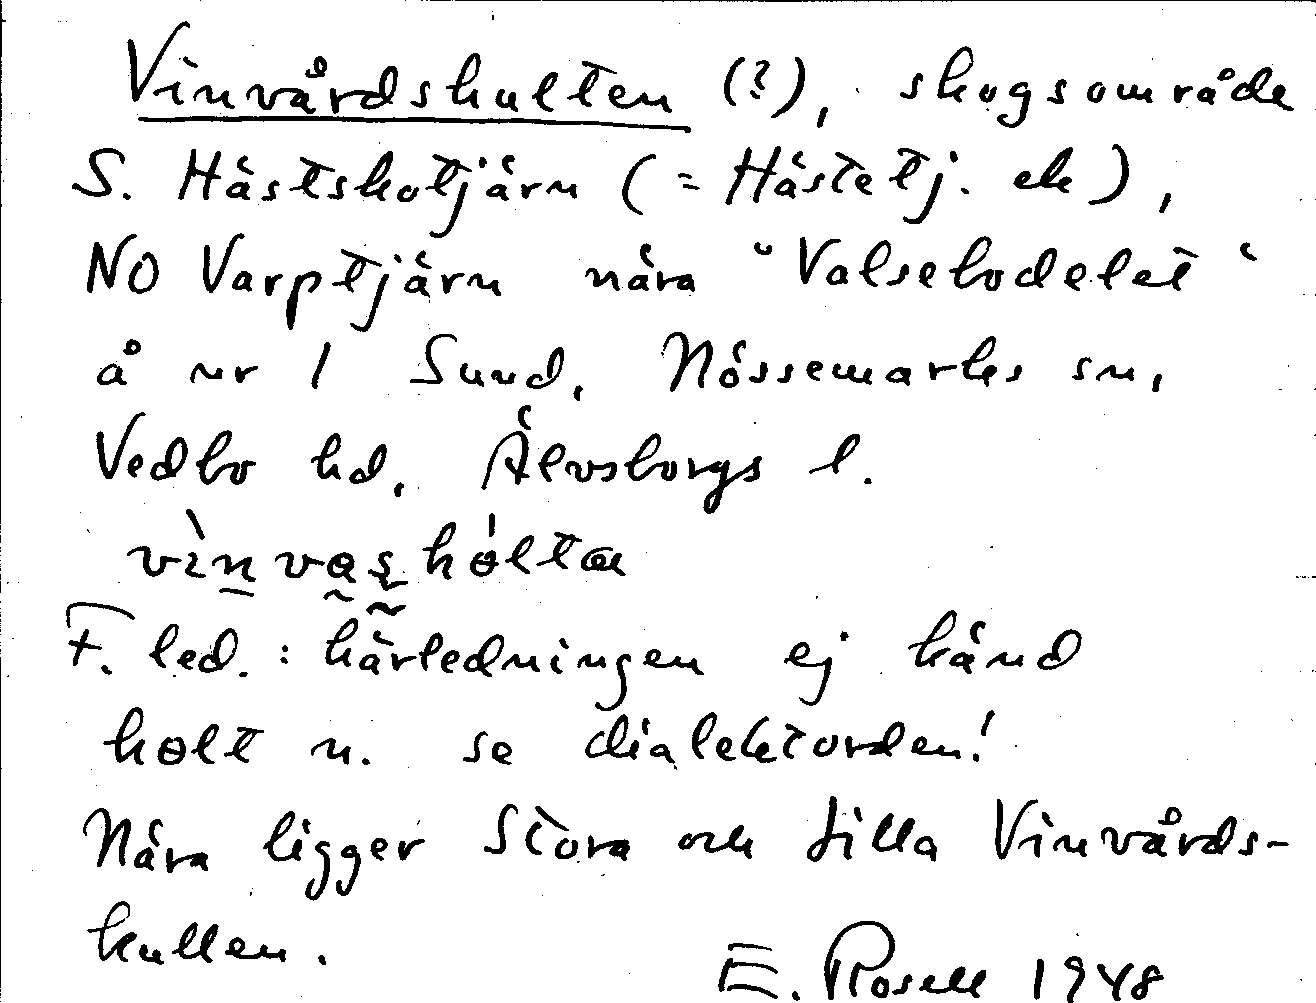 Vinvårdshulten (?), skogsområde
S. Hästskotjärn (= Hästetj. ek),
NO Varptjärn nära "Valsebodelet"
å nr 1 Sund, Nössemarks sn,
Vedbo hd, Älvsborgs l.
F. led. : härledningen ej känd
holt n. se dialektorden!
Nära ligger Stora och Lilla Vinvårds-
kullen.
E. Rosell 1948